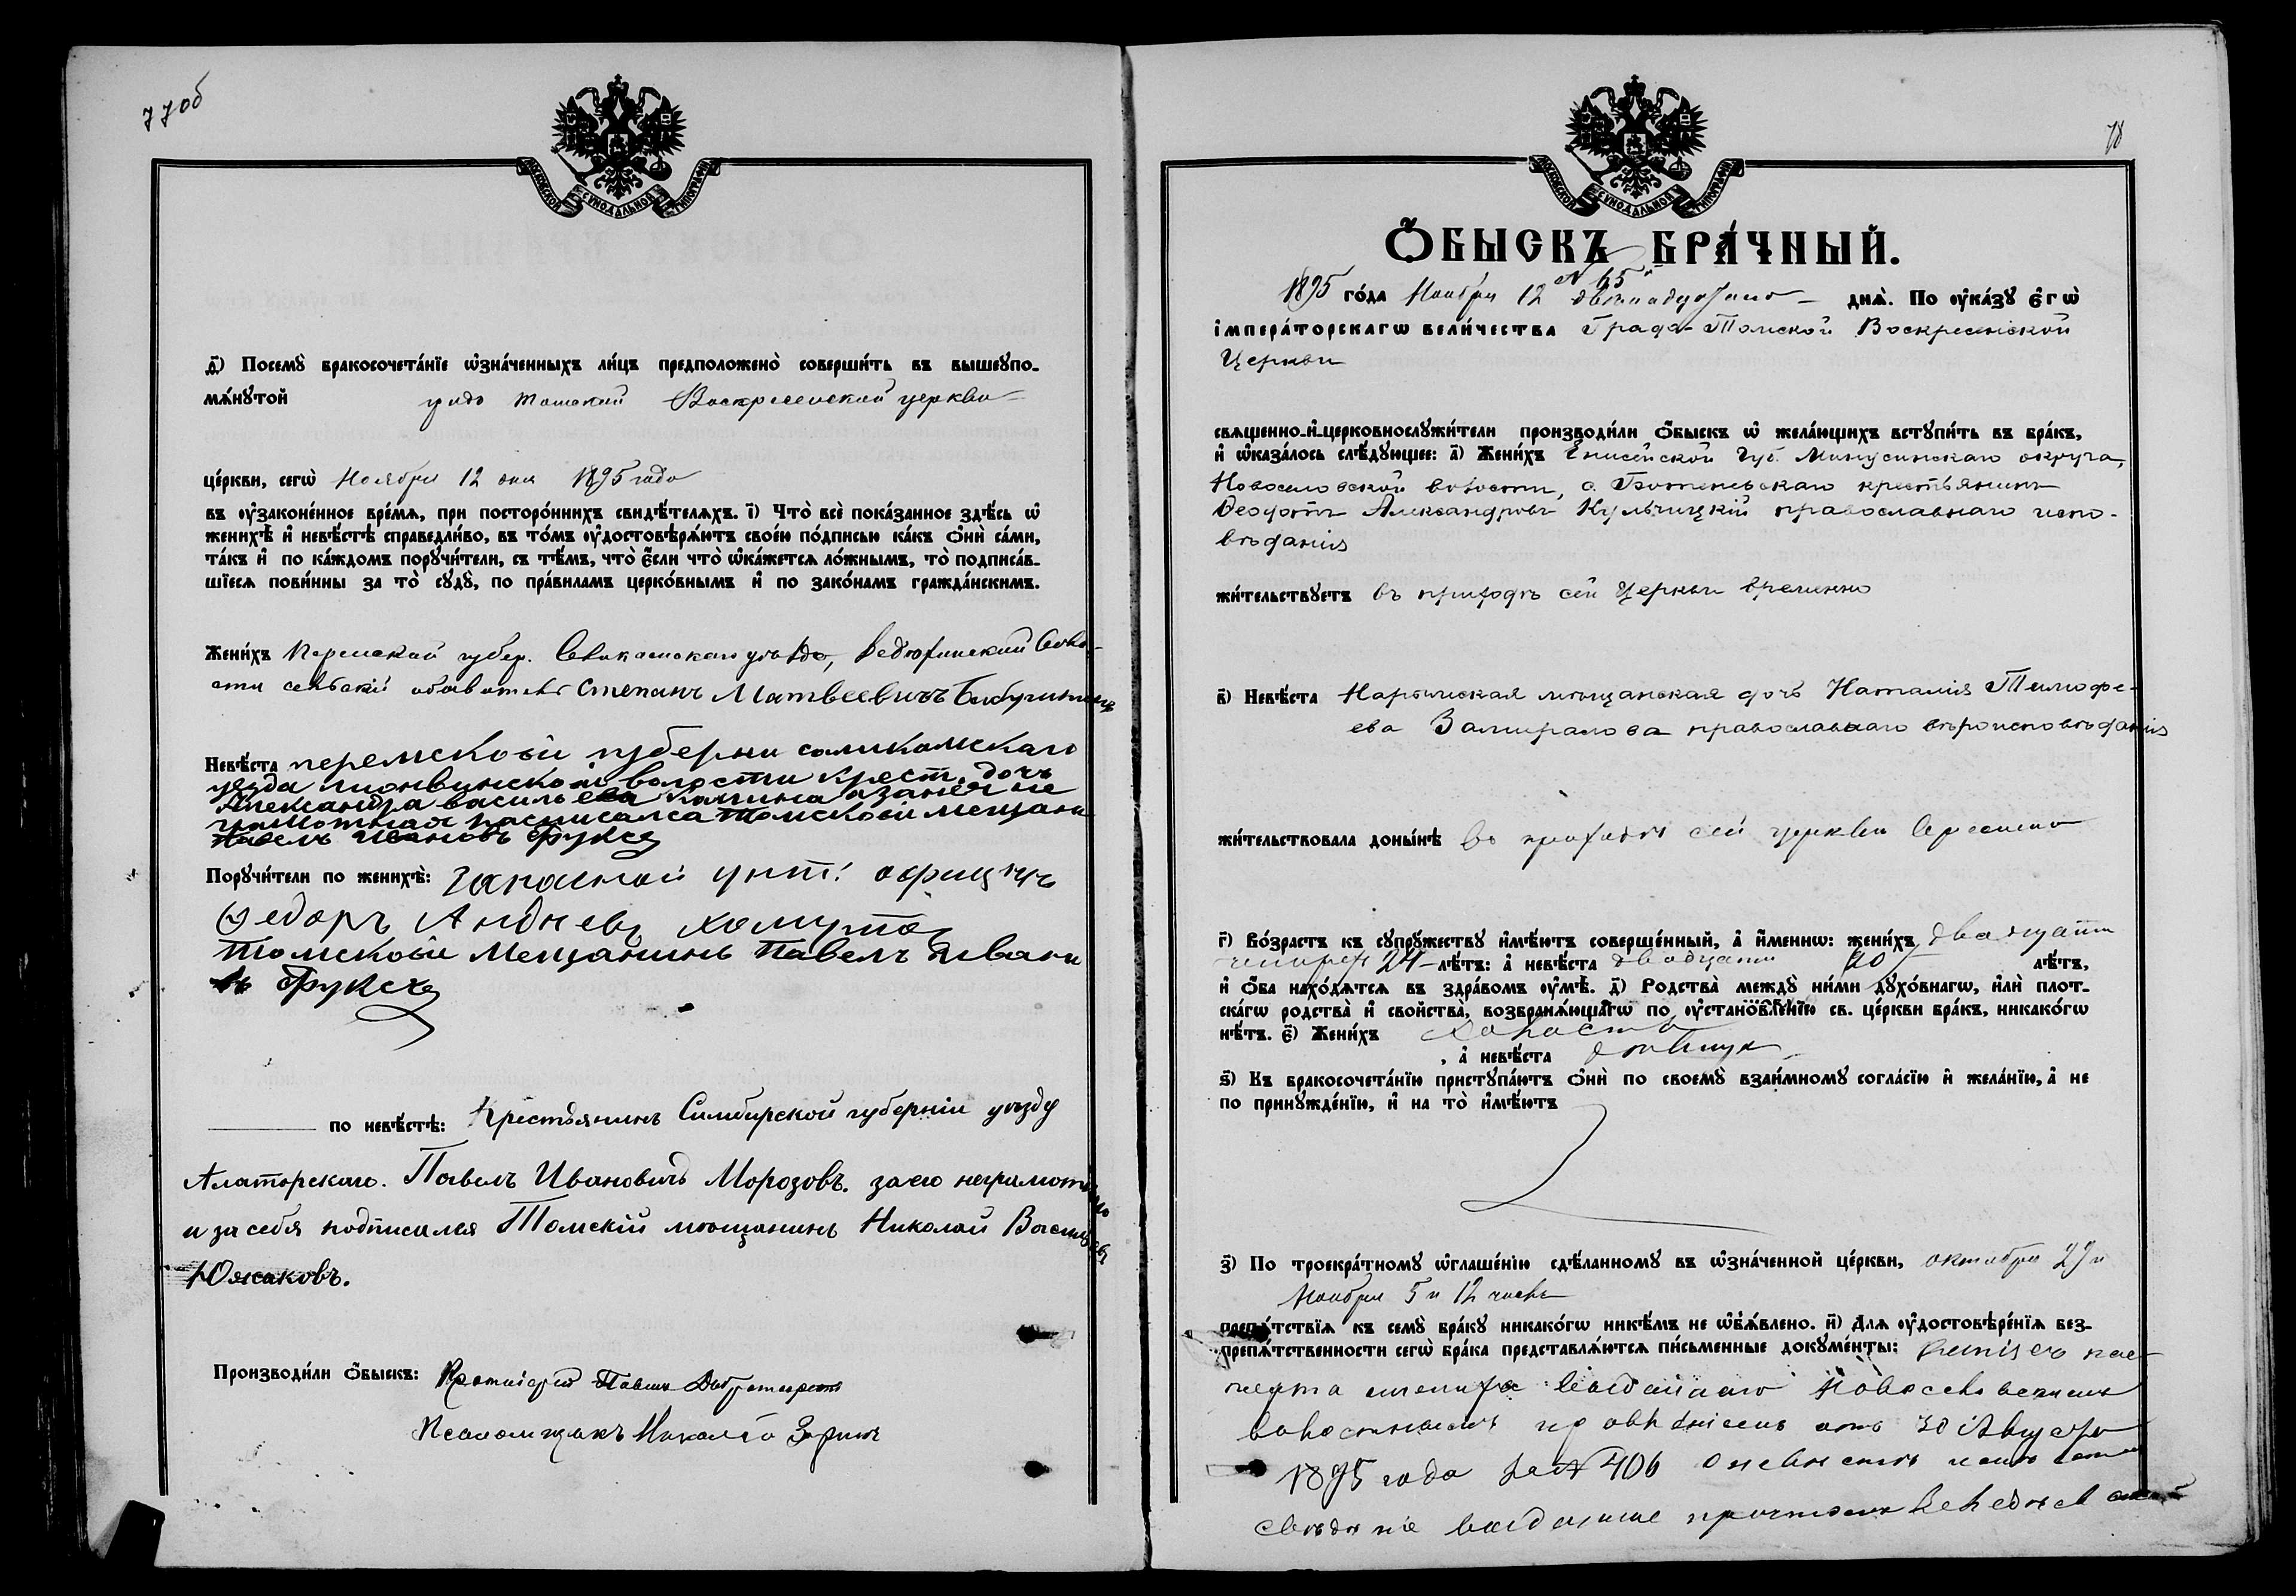 77об
МОСКОВСКОЙ СѴНОДАЛЬНОЙ ТИПОГРАФІИ
д҃) Посемꙋ̀ бракосочета́нїе ѡ҆зна́ченныхъ ли́цъ предположено̀ соверши́ть въ вышеꙋпо-
мѧ́нꙋтой градо Томской Воскресенской церкви
це́ркви, сегѡ̀ Ноября 12 дня 1895 года
въ ᲂу҆зако́ненное вре́мѧ, при посторо́ннихъ свидѣ́телѧхъ. і҃) Что̀ всѐ пока́занное здѣ́сь ѡ҆
женихѣ̀ и҆ невѣ́стѣ справедли́во, въ то́мъ ᲂу҆достовѣрѧ́ютъ свое́ю по́дписью ка́къ ѻ҆нѝ са́ми,
та́къ и҆ по ка́ждомъ порꙋчи́тели, съ тѣ́мъ, что̀ є҆́сли что̀ ѡ҆ка́жетсѧ ло́жнымъ, то̀ подписа́в-
шїесѧ пови́нны за то̀ сꙋдꙋ̀, по пра́виламъ церко́внымъ и҆ по зако́намъ гражда́нскимъ.
Жени́хъ Пермской губер. Соликамскаго уезда, Воло-
сти сельскій обыватель Степанъ Матвеевичъ
Невѣ́ста перемской губерни соликамскаго
уезда волости крест. дочь
Александра васильева а занея не
грамотная расписался томской мещани
Павелъ Ивановъ Фуксъ
Порꙋчи́тели по женихѣ̀: Запасной унт. офицеръ
Ѳедоръ Хомутов
Томской Мещанинъ Павелъ Ивано
въ Фуксъ
по невѣ́стѣ: Крестьянинъ Симбирской губерніи уѣзду
Алатырскаго. Павелъ Ивановичъ Морозовъ. за его неграмотн
и за себя подписался Томскій мѣщанинъ Николай Васильевъ
Южаковъ.
Производи́ли ѻ҆́быскъ: Протоіерей Павелъ
Псаломщикъ Николай Зоринъ
78
МОСКОВСКОЙ СѴНОДАЛЬНОЙ ТИПОГРАФІИ
Ѻ҆́БЫСКЪ БРА́ЧНЫЙ.
N 65
1895 го́да Ноября 12 двѣнадцатаго днѧ̀. По ᲂу҆ка́зꙋ є҆гѡ̀
і҆мпера́торскагѡ вели́чества Градо-Томской Воскресенской
Церкви
свѧщенно-и҆-церковнослꙋжи́тели производи́ли ѻ҆́быскъ ѡ҆ жела́ющихъ встꙋпи́ть въ бра́къ,
и҆ ѡ҆каза́лось слѣ́дꙋющее: а҃) Жени́хъ Енисейской Губ. Минусинскаго округа,
Новоселовской волости, с. Батеневскаго крестьянинъ
Ѳеодотъ Александровъ Кульчицкій православнаго испо-
вѣданія
жи́тельствꙋетъ въ приходѣ сей Церкви временно
в҃) Невѣ́ста Нарымская мѣщанская дочь Наталія Тимофе-
ева Замиралова православнаго вѣроисповѣданія
жи́тельствовала доны́нѣ въ приходѣ сей церкви временно
г҃) Во́зрастъ къ сꙋпрꙋ́жествꙋ и҆мѣ́ютъ соверше́нный, а҆ и҆́меннѡ: жени́хъ двадцати
четырехъ 24 лѣ́тъ: а҆ невѣ́ста двадцати 20 лѣ́тъ,
и҆ ѻ҆́ба нахо́дѧтсѧ въ здра́вомъ ᲂу҆мѣ̀. д҃) Родства̀ междꙋ̀ ни́ми дꙋхо́внагѡ, и҆лѝ плот-
ска́гѡ родства̀ и҆ сво́йства̀, возбранѧ́ющагѡ по ᲂу҆становле́нїю св. це́ркви бра́къ, никако́гѡ
нѣ́тъ. є҃) Жени́хъ холостъ
, а҆ невѣ́ста дѣвица
ѕ҃) Къ бракосочета́нїю пристꙋпа́ютъ ѻ҆нѝ по своемꙋ̀ взаи́мномꙋ согла́сїю и҆ жела́нїю, а҆ не
по принꙋжде́нїю, и҆ на то̀ и҆мѣ́ютъ
з҃) По троекра́тномꙋ ѡ҆глаше́нїю сдѣ́ланномꙋ въ ѡ҆зна́ченной це́ркви, октября 29 и
Ноября 5 и 12 чиселъ
препѧ́тствїѧ къ семꙋ̀ бра́кꙋ никако́гѡ никѣ́мъ не ѡ҆б̾ѧ́влено. и҃) Длѧ ᲂу҆достовѣре́нїѧ без-
препѧ́тственности сегѡ̀ бра́ка представлѧ́ютсѧ пи́сьменные докꙋме́нты: Копія съ пас-
порта жениха выданнаго Новоселовскимъ
волостнымъ правленіемъ отъ 30 Августа
1895 года за N 406 о невѣстѣ
свѣдѣніе выданное причтомъ